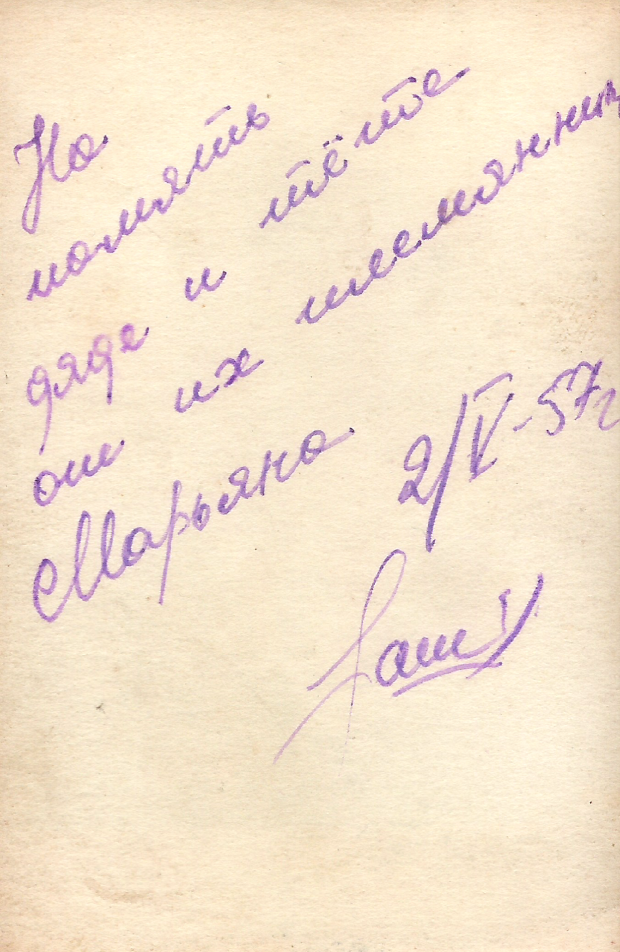 На
память
дяде и тёте
от их племянник
Марьяна.
2/V-57г